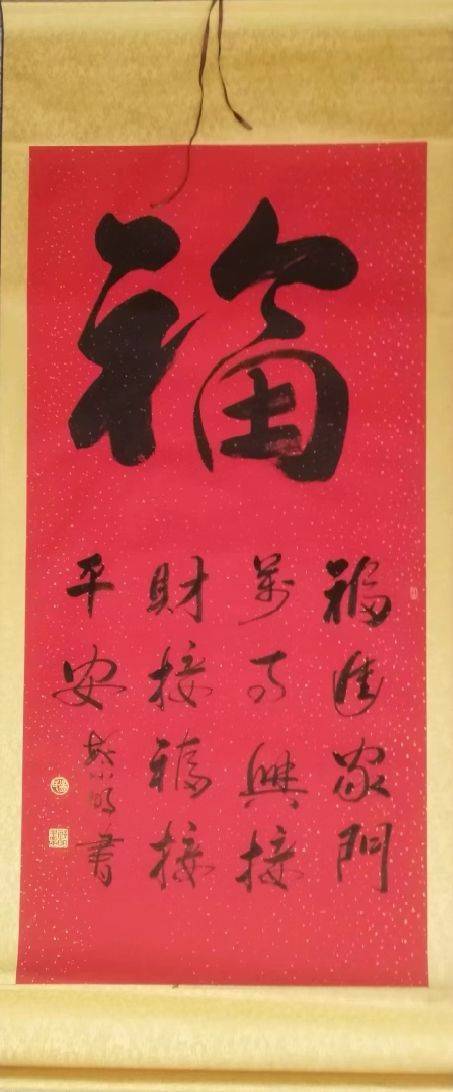 福
福進家門
萬事興接
財接福接
平安
書